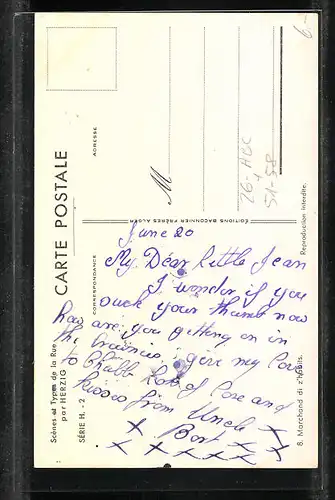 6.-
CARTE POSTALE
ADRESSE
CORRESPONDANCE
Scènes et Types de la Rue
par HERZIG
SÉRIE H. - 2
M
ÉDITIONS BACONNIER FRÈRES ALGER
Reproduction interdite.
8. Marchand di z'habits.
51-58
June 20
My Dear little Jean
I wonder if you
suck your thumb now
how are you getting on in
the evenings, give my love
to Lots of love and
kisses from Uncle
Bert x x
x x x x x x